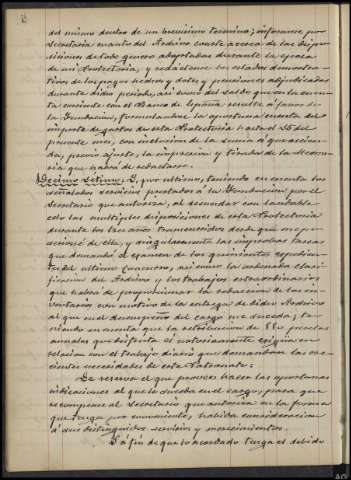 del mismo dentro de un brevísimo término; informese por
Secretaría cuanto del Archivo conste acerca de las dispo-
siciones de todo género adoptadas durante la época
de mi Protectoría, y redáctense los estados demostra-
tivos de los pagos hechos y dotes y pensiones adjudicadas
durante dicho período, así como del saldo que en la cuen-
ta corriente con el Banco de España resulte á favor de
la Fundación; formulándose la oportuna cuenta del
importe de gastos de esta Protectoría hasta el 25 del
presente mes, con inclusión de la suma á que ascien-
da, previo ajuste, la impresión y tirada de la Memo-
ria que habrá de redactarse.
Décimo sétimo: Y, por último, teniendo en cuenta los
señalados servicios prestados á la Fundación por el
Secretario que autoriza, al secundar con laudable
celo las múltiples disposiciones de esta Protectoría
durante los tres años transcurridos desde que me po-
sesioné de ella, y singularmente las improbas tareas
que demandó el examen de los quinientos expedien-
tes del último Concurso, así como la ordenada clasi-
ficación del Archivo y los trabajos extraordinarios
que habrá de proporcionar la redacción de los in-
ventarios con motivo de la entrega de dicho Archivo
al que en el desempeño del cargo me suceda; te-
niendo en cuenta que la retribución de 550 pesetas
anuales que disfruta es notoriamente exigua en
relación con el trabajo diario que demandan las cre-
cientes necesidades de este Patronato:
Me reservo el que proveer hacer las oportunas
indicaciones al que le suceda en el cargo, para que
se recompense al Secretario que autoriza en la forma
que tenga por conveniente, habida consideración
á sus distinguidos servicios y merecimientos.
Y á fin de que lo acordado tenga el debido